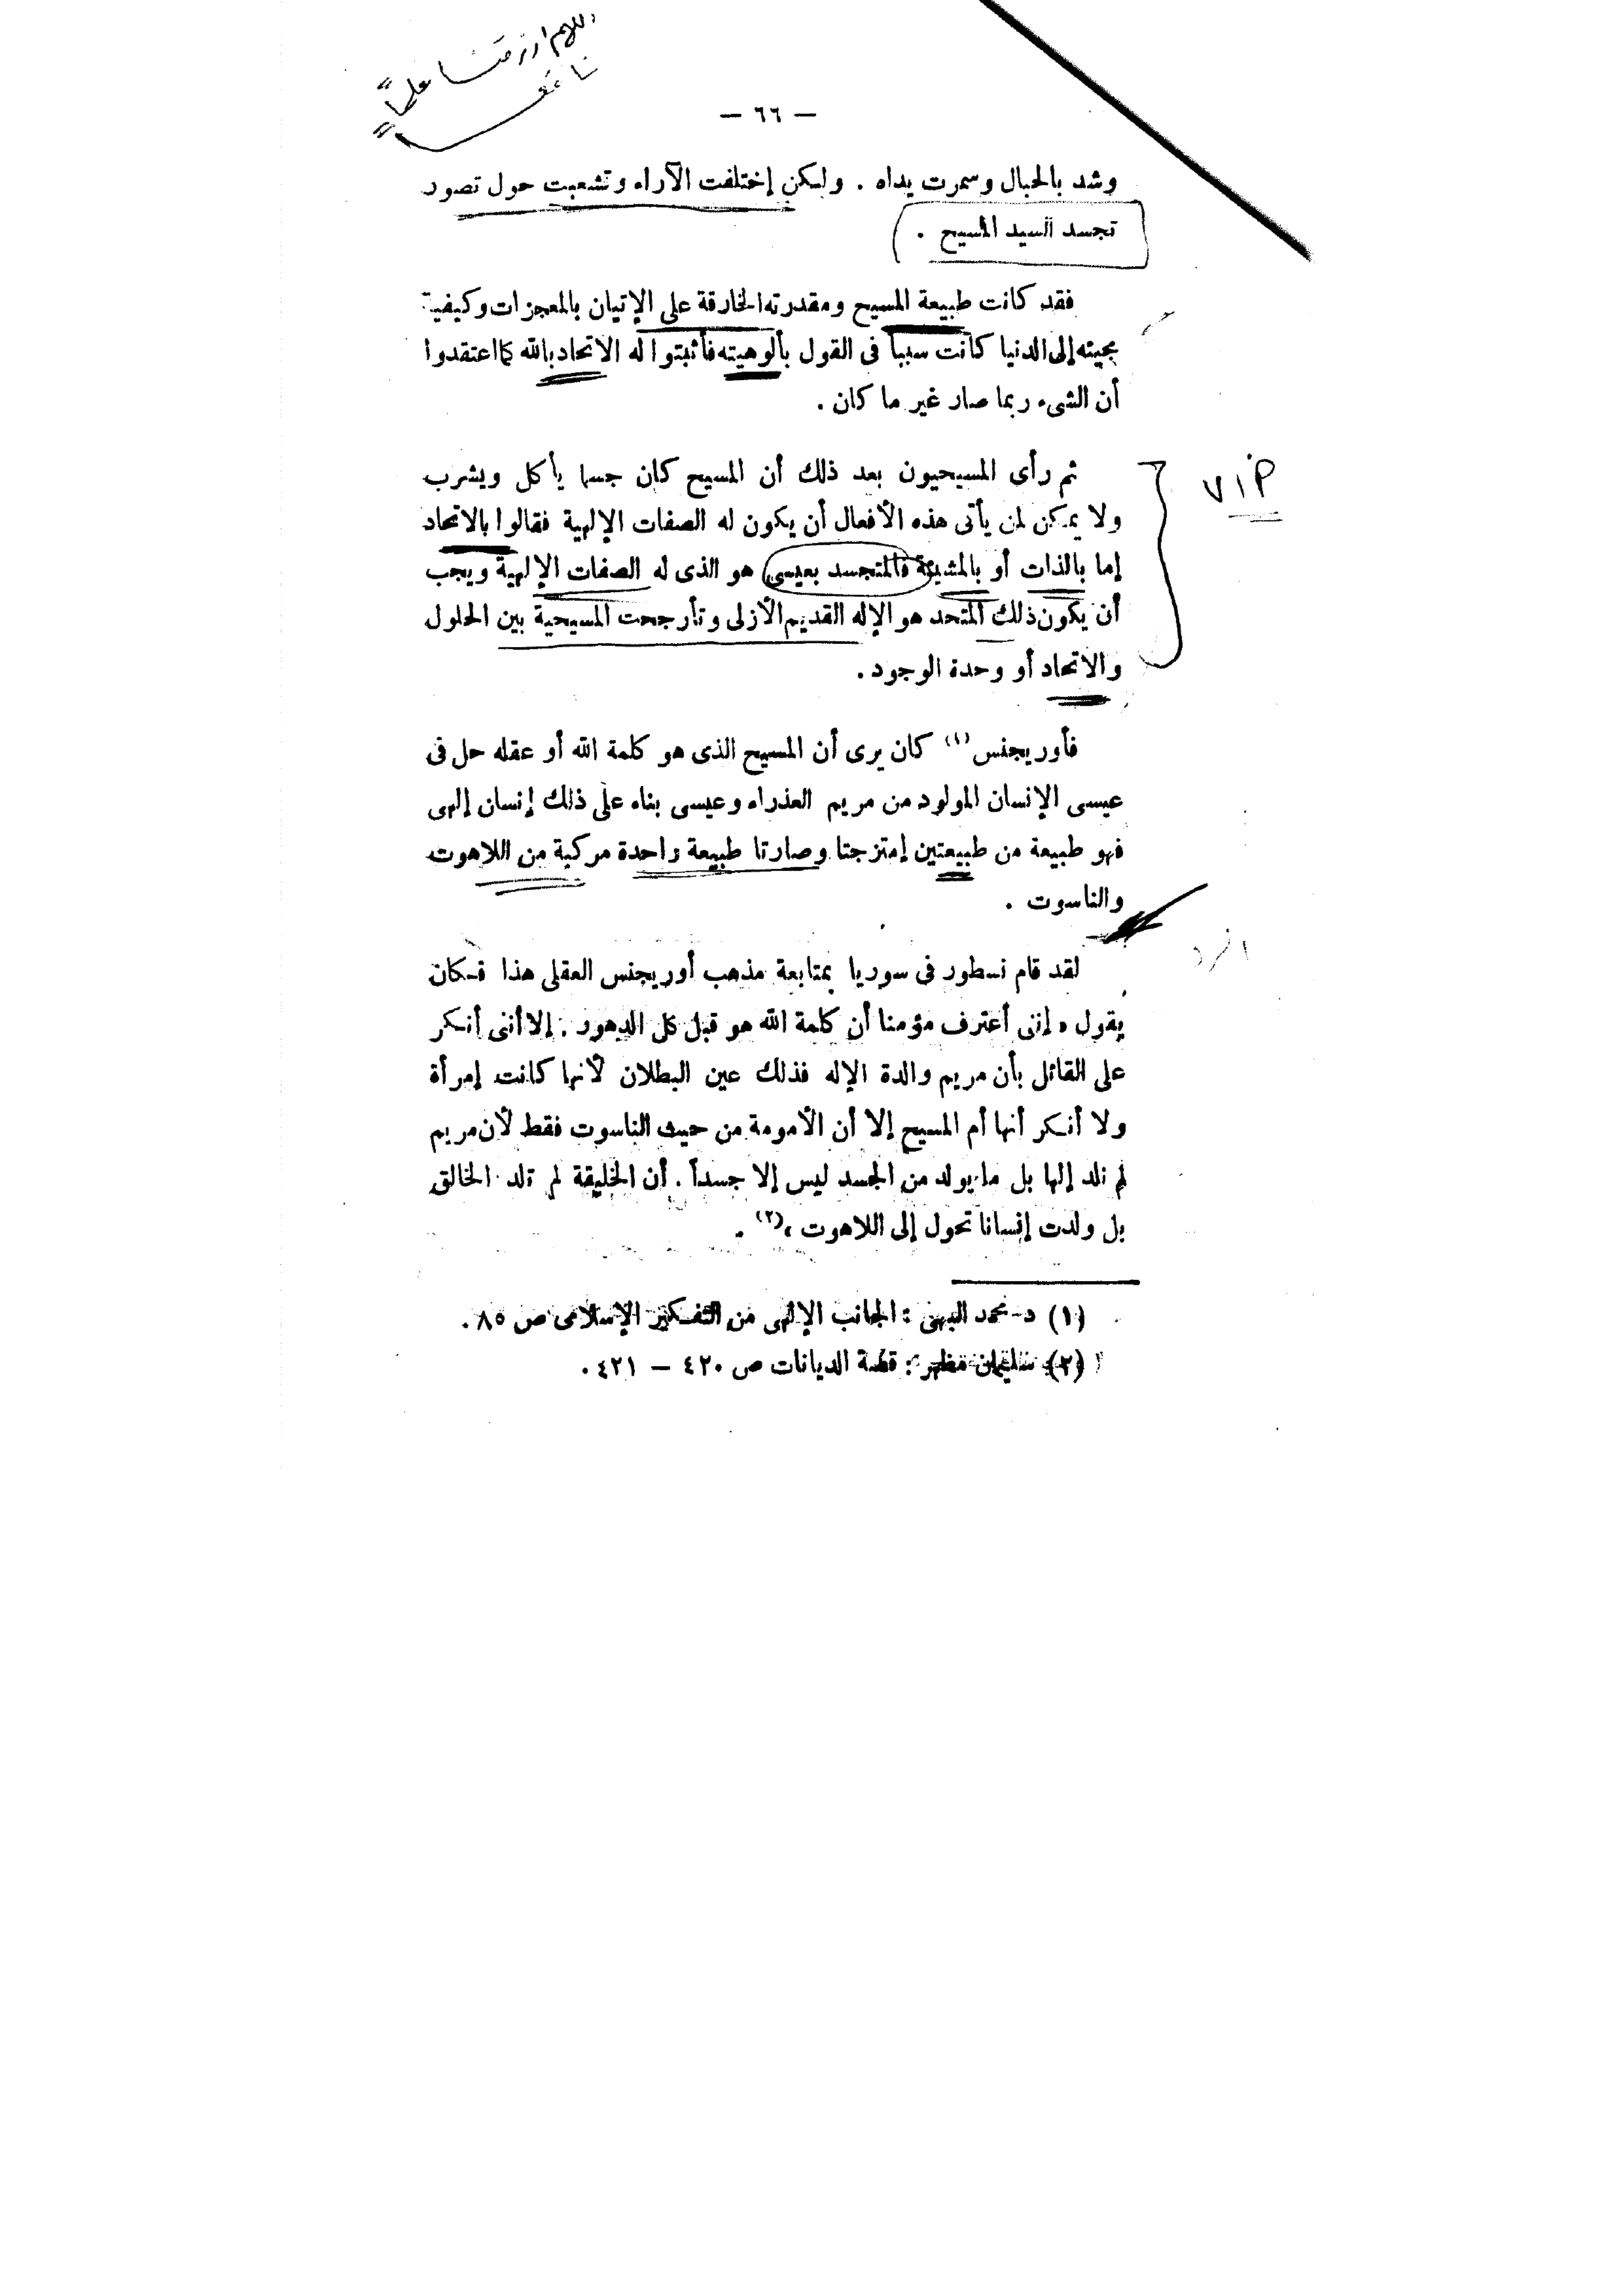 اللهم ارزقنا علماً
نافعا
— ٦٦ —
وشد بالحبال وسمرت يداه . ولكن إختلفت الآراء وتشعبت حول تصور
تجسد السيد المسيح .
فقد كانت طبيعة المسيح ومقدرته الخارقة على الإتيان بالمعجزات وكيفية
مجيئه إلى الدنيا كانت سبباً فى القول بألوهيته فأثبتوا له الاتحاد بالله كما اعتقدوا
أن الشىء ربما صار غير ما كان .
ثم رأى المسيحيون بعد ذلك أن المسيح كان جسما يأكل ويشرب
VIP
ولا يمكن لمن يأتى هذه الأفعال أن يكون له الصفات الإلهية فقالوا بالاتحاد
إما بالذات أو بالمشيئة فالمتجسد بعيسى هو الذى له الصفات الإلهية ويجب
أن يكون ذلك المتحد هو الإله القديم الأزلى وتأرجحت المسيحية بين الحلول
والاتحاد أو وحدة الوجود .
فأوريجنس (١) كان يرى أن المسيح الذى هو كلمة الله أو عقله حل فى
عيسى الإنسان المولود من مريم العذراء وعيسى بناء على ذلك إنسان إلهى
فهو طبيعة من طبيعتين إمتزجتا وصارتا طبيعة واحدة مركبة من اللاهوت
والناسوت .
لقد قام نسطور فى سوريا بمتابعة مذهب أوريجنس العقلى هذا فكان
يقول « إننى أعترف مؤمنا أن كلمة الله هو قبل كل الدهور . إلا أننى أنكر
على القائل بأن مريم والدة الإله فذلك عين البطلان لأنها كانت إمرأة
ولا أنكر أنها أم المسيح إلا أن الأمومة من حيث الناسوت فقط لأن مريم
لم تلد إلها بل ما يولد من الجسد ليس إلا جسداً . أن الخليقة لم تلد الخالق
بل ولدت إنسانا تحول إلى اللاهوت » (٢) .
(١) د. محمد البهى : الجانب الإلهى من التفكير الإسلامى ص ٨٥ .
(٢) سليمان مظهر : قصة الديانات ص ٤٢٠ — ٤٢١ .